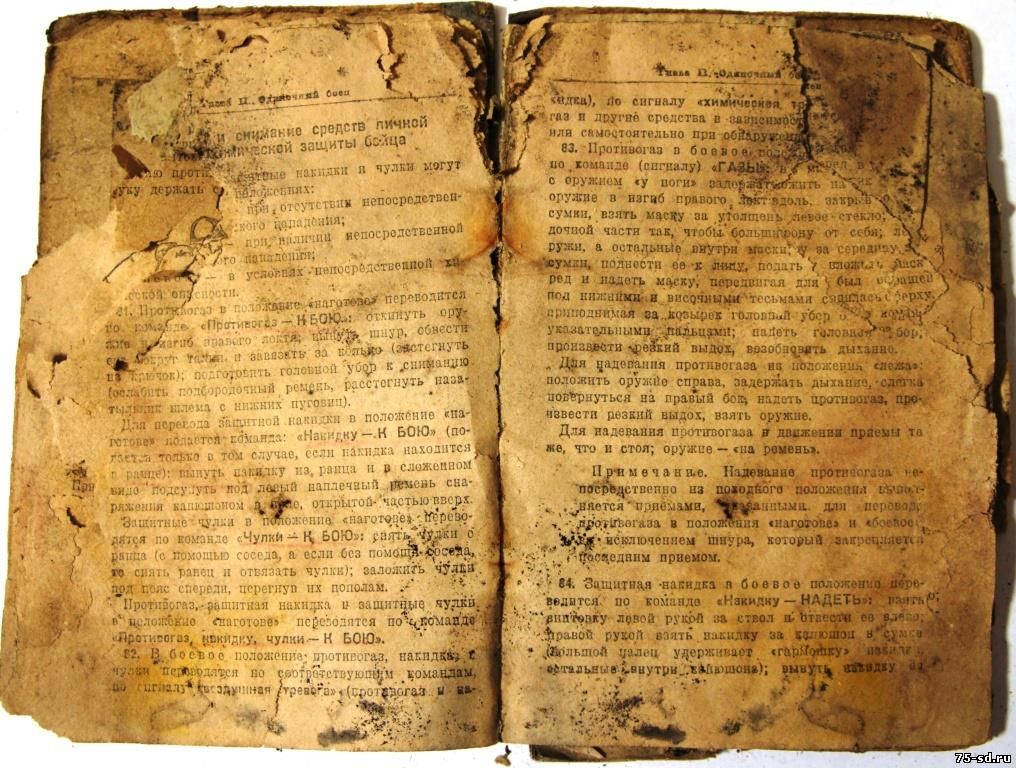 Глава II. Одиночный боец
и снимание средств личной
химической защиты бойца
накидки и чулки могут
держать положениях:
при отсутствии непосредствен-
нападения;
при наличии непосредственной
нападения;
— в условиях непосредственной хи-
опасности.
81. Противогаз в положение «наготове» переводится
по команде «Противогаз — К БОЮ»: откинуть ору-
жие в изгиб правого локтя; вынуть шнур, обнести
его вокруг талии и завязать за кольцо (застегнуть
на крючок); подготовить головной убор к сниманию
(ослабить подбородочный ремень, расстегнуть наза-
тыльник шлема с нижних пуговиц).
Для перевода защитной накидки в положение «на-
готове» подается команда: «Накидку — К БОЮ» (по-
дается только в том случае, если накидка находится
в ранце): вынуть накидку из ранца и в сложенном
виде подсунуть под левый наплечный ремень сна-
ряжения капюшоном открытой частью вверх.
Защитные чулки в положение «наготове» перево-
дятся по команде «Чулки — К БОЮ»: снять чулки с
ранца (с помощью соседа, а если без помощи соседа,
то снять ранец и отвязать чулки); заложить чулки
под пояс спереди, перегнув их пополам.
Противогаз, защитная накидка и защитные чулки
в положение «наготове» переводятся по команде
«Противогаз, накидку, чулки — К БОЮ».
82. В боевое положение противогаз, накидка и
чулки переводятся по соответствующим командам,
по сигналу «воздушная тревога» (противогаз и на-
Глава II. Одиночный
кидка), по сигналу «химическая
газ и другие средства в зависимос
или самостоятельно при обнаружен
83. Противогаз в боевое
по команде (сигналу) «ГАЗЫ»:
с оружием «у ноги» задержать
оружие в изгиб правого локтя
сумки, взять маску за
дочной части так, чтобы большие
ружи, а остальные внутри маски;
сумки, поднести ее к лицу, подать
ред и надеть маску, передвигая для
под нижними и височными тесьмами
приподнимая за козырек головной убор
указательными пальцами; надеть головной убор;
произвести резкий выдох, возобновить дыхание.
Для надевания противогаза из положения «лежа»:
положить оружие справа, задержать дыхание, слегка
повернуться на правый бок, надеть противогаз, про-
извести резкий выдох, взять оружие.
Для надевания противогаза в движении приемы те
же, что и стоя; оружие — «на ремень».
Примечание. Надевание противогаза не-
посредственно из походного положения выпол-
няется приёмами, указанными для перевода
противогаза в положения «наготове» и «боевое»
исключением шнура, который закрепляется
последним приемом.
84. Защитная накидка в боевое положение пере-
водится по команде «Накидку — НАДЕТЬ»: взять
винтовку левой рукой за ствол и отвести ее влево;
правой рукой взять накидку за капюшон в сумке
(большой палец удерживает «гармошку» накидки,
остальные внутри капюшона); вынуть накидку из
75-sd.ru